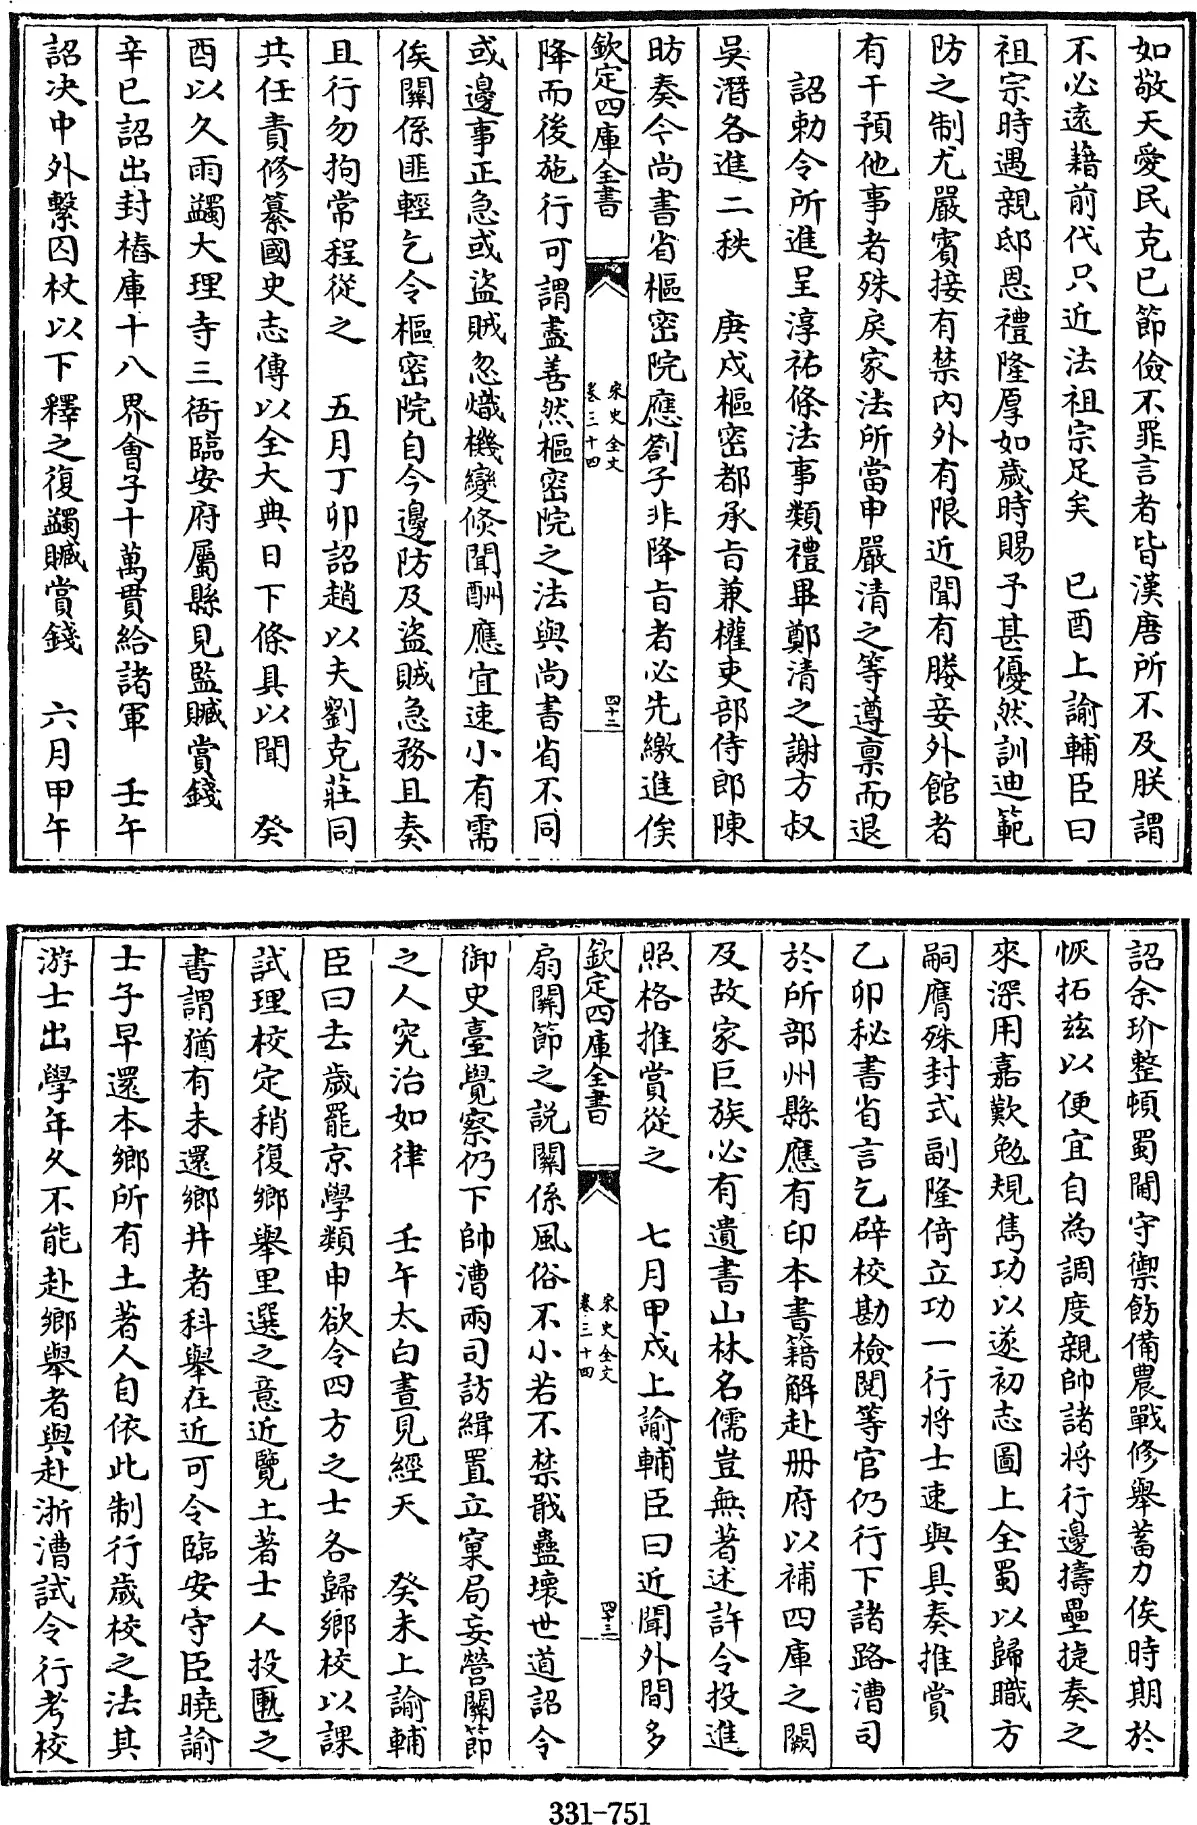 如敬天愛民克已節儉不罪言者皆漢唐所不及朕謂
不必遠藉前代只近法祖宗足矣　已酉上諭輔臣曰
祖宗時遇親邸恩禮隆厚如歲時賜予甚優然訓迪範
防之制尤嚴賓接有禁內外有限近聞有媵妾外館者
有干預他事者殊戾家法所當申嚴清之等遵稟而退
詔勅令所進呈淳祐條法事類禮畢鄭清之謝方叔
吳潛各進二秩　庚戌樞密都承旨兼權吏部侍郎陳
昉奏今尚書省樞密院應劄子非降旨者必先繳進俟
欽定四庫全書
宋史全文
卷三十四
四十二
降而後施行可謂盡善然樞密院之法與尚書省不同
或邊事正急或盜賊忽熾機變倐聞酬應宜速小有需
俟關係匪輕乞令樞密院自今邊防及盜賊急務且奏
且行勿拘常程從之　五月丁卯詔趙以夫劉克莊同
共任責修纂國史志傳以全大典日下條具以聞　癸
酉以久雨蠲大理寺三衙臨安府屬縣見監贓賞錢
辛已詔出封樁庫十八界會子十萬貫給諸軍　壬午
詔决中外繫囚杖以下釋之復蠲贓賞錢　六月甲午
詔余玠整頓蜀閫守禦飭備農戰修舉蓄力俟時期於
恢拓兹以便宜自為調度親帥諸將行邊擣壘捷奏之
來深用嘉歎勉規雋功以遂初志圖上全蜀以歸職方
嗣膺殊封式副隆倚立功一行將士速與具奏推賞
乙卯秘書省言乞辟校勘檢閱等官仍行下諸路漕司
於所部州縣應有印本書籍解赴册府以補四庫之闕
及故家巨族必有遺書山林名儒豈無著述許令投進
照格推賞從之　七月甲戌上諭輔臣曰近聞外間多
欽定四庫全書
宋史全文
卷三十四
四十三
扇關節之説關係風俗不小若不禁戢蠱壞世道詔令
御史臺覺察仍下帥漕兩司訪緝置立窠局妄營關節
之人究治如律　壬午太白晝見經天　癸未上諭輔
臣曰去歲罷京學類申欲令四方之士各歸鄉校以課
試理校定稍復鄉舉里選之意近覽土著士人投匭之
書謂猶有未還鄉井者科舉在近可令臨安守臣曉諭
士子早還本鄉所有土著人自依此制行歲校之法其
游士出學年久不能赴鄉舉者與赴浙漕試令行考校
331-751